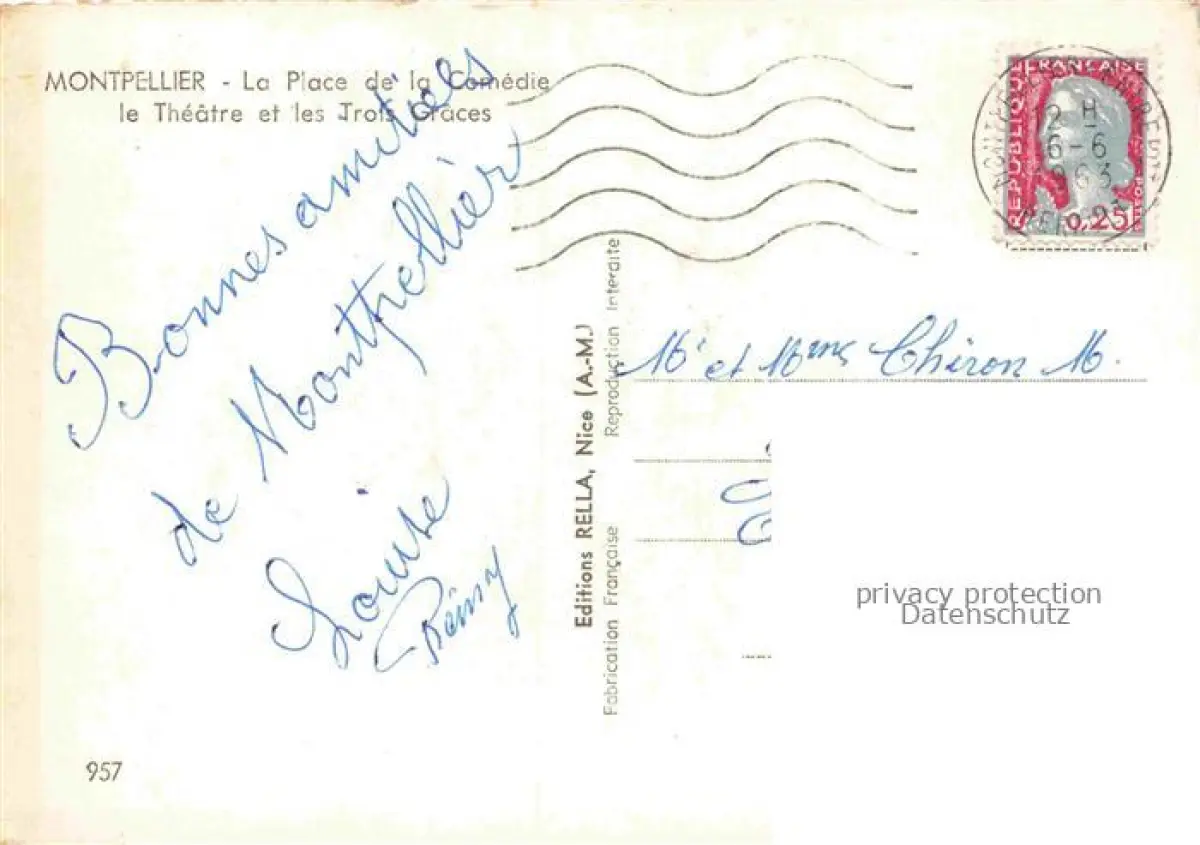 MONTPELLIER - La Place de la Comédie
le Théâtre et les Trois Grâces
Bonnes amitiés
de Montpellier
Louise
Rémy
957
Editions RELLA, Nice (A.-M.)
Fabrication Française Reproduction Interdite
REPUBLIQUE FRANÇAISE
0,25F
2 H
6-6
1963
Mr et Mme Chiron M.
privacy protection
Datenschutz